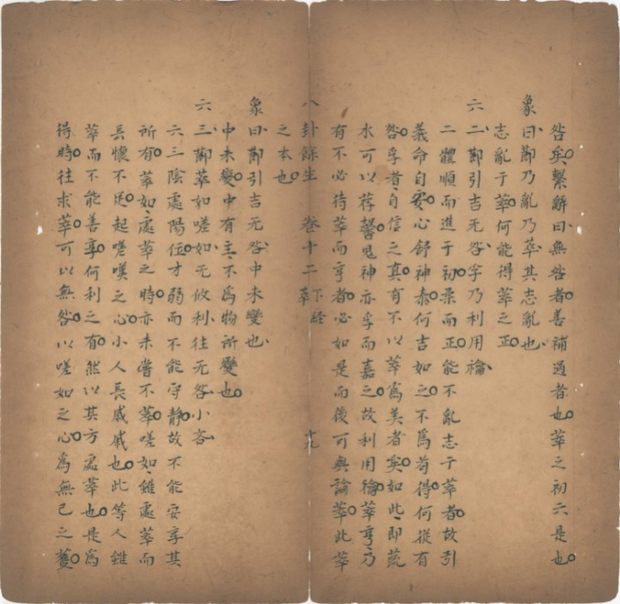 咎矣繫辭曰無咎者善補過者也萃之初六是也
象曰鄮乃亂乃萃其志亂也
志亂于萃何能得萃之正
六二鄮引吉无咎孚乃利用禴
二體順而進于初柔而正能不亂志于萃者故引
義命自安心舒神泰何吉如之不為苟得何從有
咎孚者自信之真有不以萃為美者矣如此即蔬
水可以荐馨鬼神亦孚而嘉之故利用禴萃亨乃
有不必待萃而亨者必如是而後可與論萃此萃
之本也
八卦餘生 卷十二 下經 萃 十九
象曰鄮引吉无咎中未變也
中未變中有主不為物所變也
六三鄮萃如嗟如无攸利往无咎小吝
六三陰處陽位才弱而不能守靜故不能安享其
所有萃如處萃之時亦未嘗不萃嗟如雖處萃而
長懷不足起嗟嘆之心小人長戚戚也此等人雖
萃而不能善享何利之有然以其方處萃也是為
得時往求萃可以無咎以嗟如之心為無已之